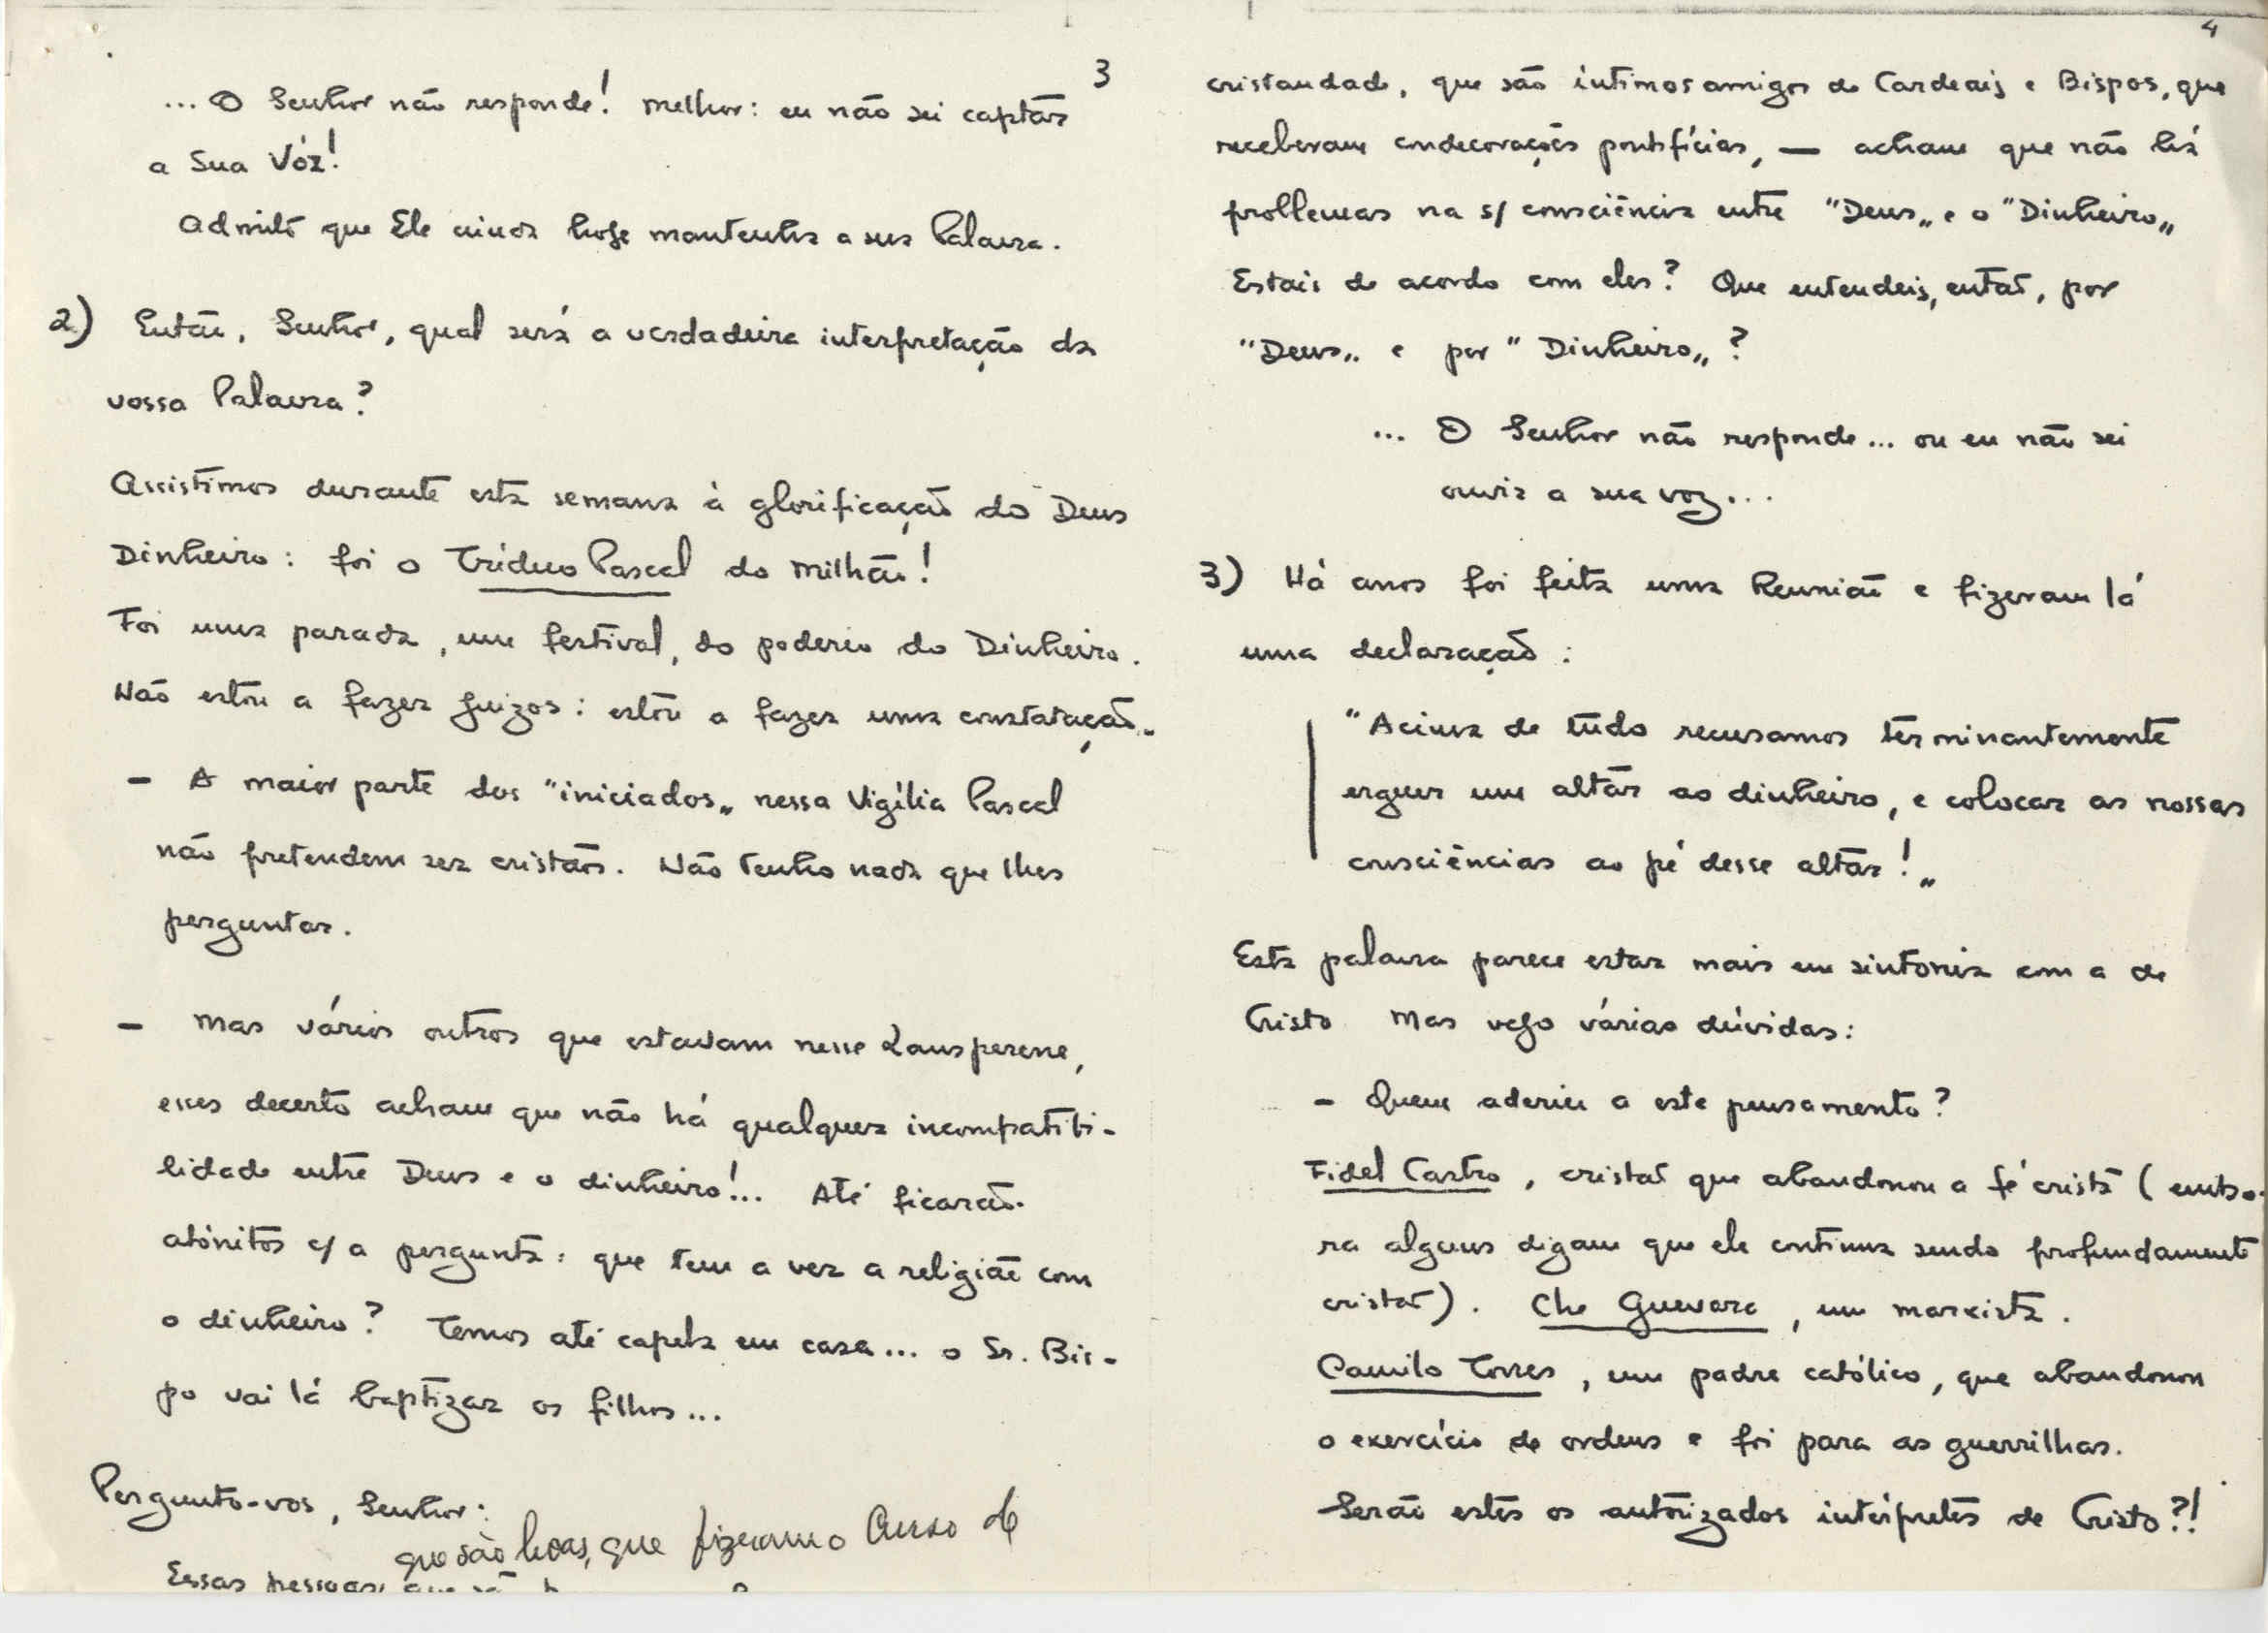 3
... O Senhor não responde! Melhor: eu não sei captar
a Sua Vóz!
Admito que Ele ainda hoje mantenha a sua Palavra.
2) Então, Senhor, qual será a verdadeira interpretação da
vossa Palavra?
Assistimos durante esta semana à glorificação do Deus
Dinheiro: foi o Tríduo Pascal do Milhão!
Foi uma parada, um festival, do poderio do Dinheiro.
Não estou a fazer juizos: estou a fazer uma constatação.
- A maior parte dos "iniciados„ nessa Vigília Pascal
não pretendem ser cristãos. Não tenho nada que lhes
perguntar.
- Mas vários outros que estavam nesse Lausperene,
esses decerto acham que não há qualquer incompatibi-
lidade entre Deus e o dinheiro!... Até ficarão
atónitos c/ a pergunta: que tem a ver a religião com
o dinheiro? Temos até capela em casa... o Sr. Bis-
po vai lá baptizar os filhos...
Pergunto-vos, Senhor:
que são boas, que fizeram o Curso de
Essas pessoas, que são
4
cristandade, que são íntimos amigos de Cardeais e Bispos, que
receberam condecorações pontifícias, — acham que não há
problemas na s/ consciência entre "Deus„ e o "Dinheiro„
Estais de acordo com eles? Que entendeis, então, por
"Deus„ e por "Dinheiro„?
... O Senhor não responde... ou eu não sei
ouvir a sua voz...
3) Há anos foi feita uma Reunião e fizeram lá
uma declaração:
"Acima de tudo recusamos terminantemente
erguer um altar ao dinheiro, e colocar as nossas
consciências ao pé desse altar!„
Esta palavra parece estar mais em sintonia com a de
Cristo Mas vejo várias dúvidas:
- Quem aderiu a este pensamento?
Fidel Castro, cristão que abandonou a fé cristã (embo-
ra alguns digam que ele continua sendo profundamente
cristão). Che Guevara, um marxista.
Camilo Torres, um padre católico, que abandonou
o exercício de ordens e foi para as guerrilhas.
Serão estes os autorizados intérpretes de Cristo?!